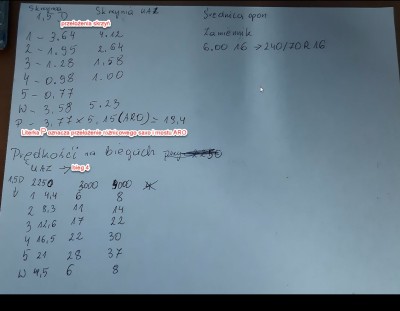 Skrzynia Skrzynia UAZ
1,5 D
przełożenia skrzyń
1 - 3.64 4.12
2 - 1.95 2.64
3 - 1.28 1.58
4 - 0.98 1.00
5 - 0.77
W - 3.58 5.23
P - 3.77 x 5.15 (ARO) = 19,4
Literka P oznacza przełożenie różnicowego szxo - mostu ARO
Prędkości na biegach
UAZ → bieg 4
1,5D 2250 3000 4000
1 4,4 6 8
2 8,3 11 14
3 12,6 17 22
4 16,5 22 30
5 21 28 37
W 4,5 6 8
Średnica opon
Zamiennik
6,00 16 → 240/70 R 16